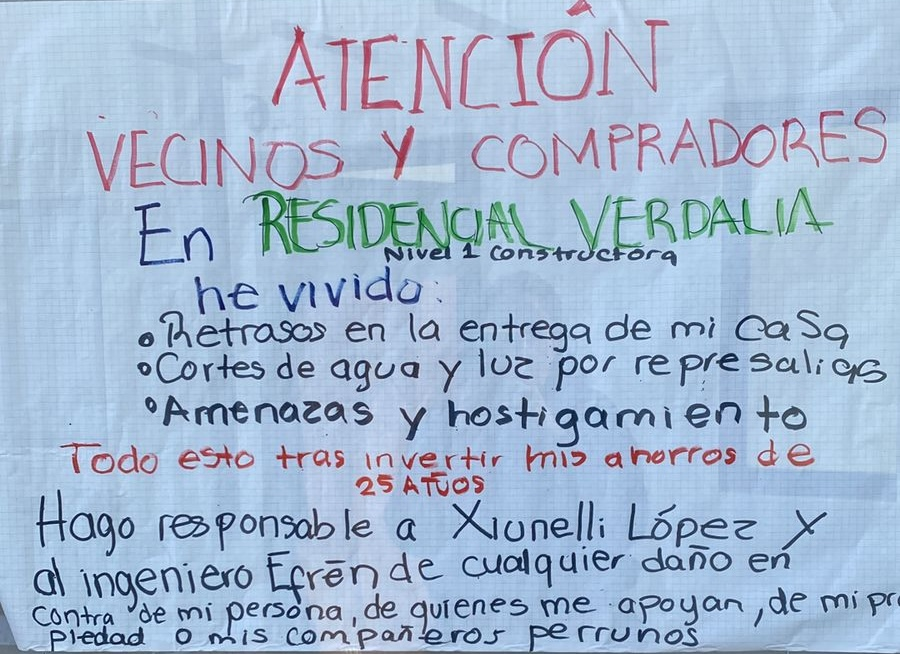 ATENCIÓN
VECINOS Y COMPRADORES
En RESIDENCIAL VERDALIA
Nivel 1 Constructora
he vivido:
• Retrasos en la entrega de mi casa
• Cortes de agua y luz por represalias
• Amenazas y hostigamiento
Todo esto tras invertir mis ahorros de
25 AÑOS
Hago responsable a Xiunelli López y
al ingeniero Efrén de cualquier daño en
contra de mi persona, de quienes me apoyan, de mi pro
piedad o mis compañeros perrunos